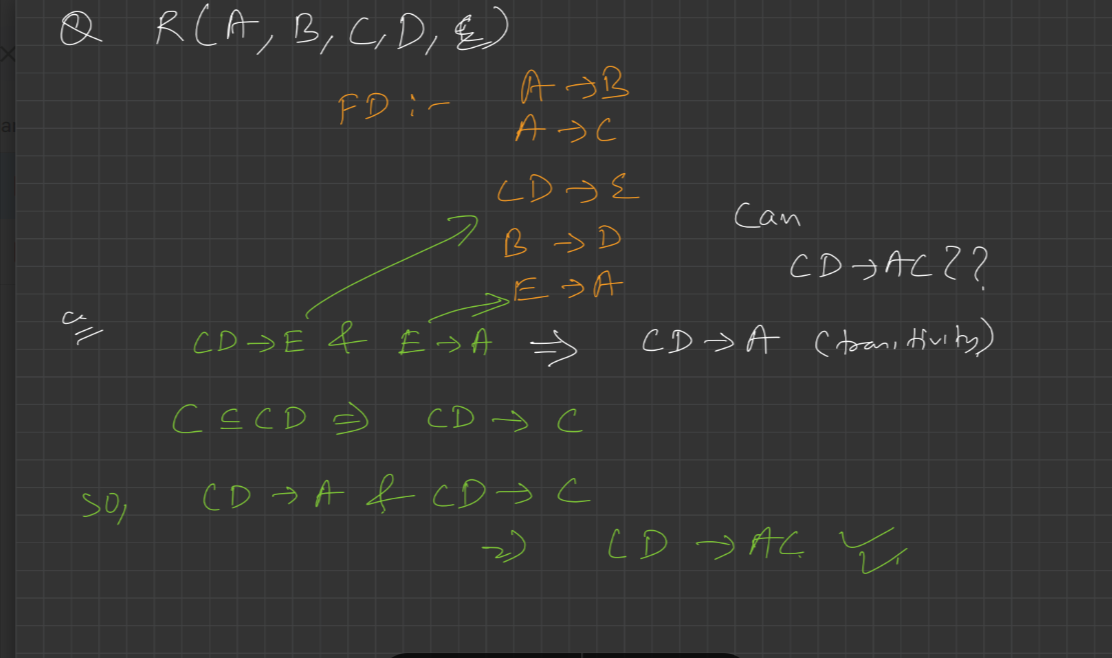 Q R(A, B, C, D, E)
FD :- A → B
A → C
CD → E
B → D
E → A
Can
CD → AC ??
CD → E & E → A ⇒ CD → A (transitivity)
C ⊆ CD ⇒ CD → C
SO, CD → A & CD → C
⇒ CD → AC ✓